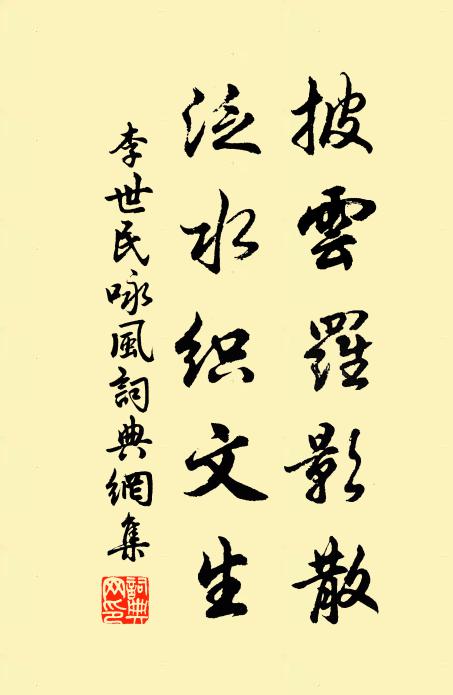 披雲羅影散
泛水织文生
李世民咏風詞典網集
詞典网印